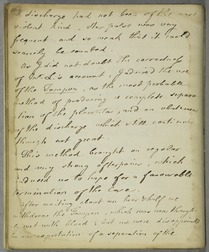 discharge had not been of the most
violent kind, the pulse was very
frequent and so weak that it could
scarcely be counted.
As I did not doubt the correctness
of account, I advised the use
of the Tampon, as the most probable
method of producing a complete separa
tion of the placenta, and an abatement
of the discharge which still continued
though not great.
This method brought on regular
and very strong efforts, which
induced me to hope for a favourable
termination of the case.
After waiting about an hour & half we
withdrew the Tampon, which was now though
wet with blood, but no
of a separation of the